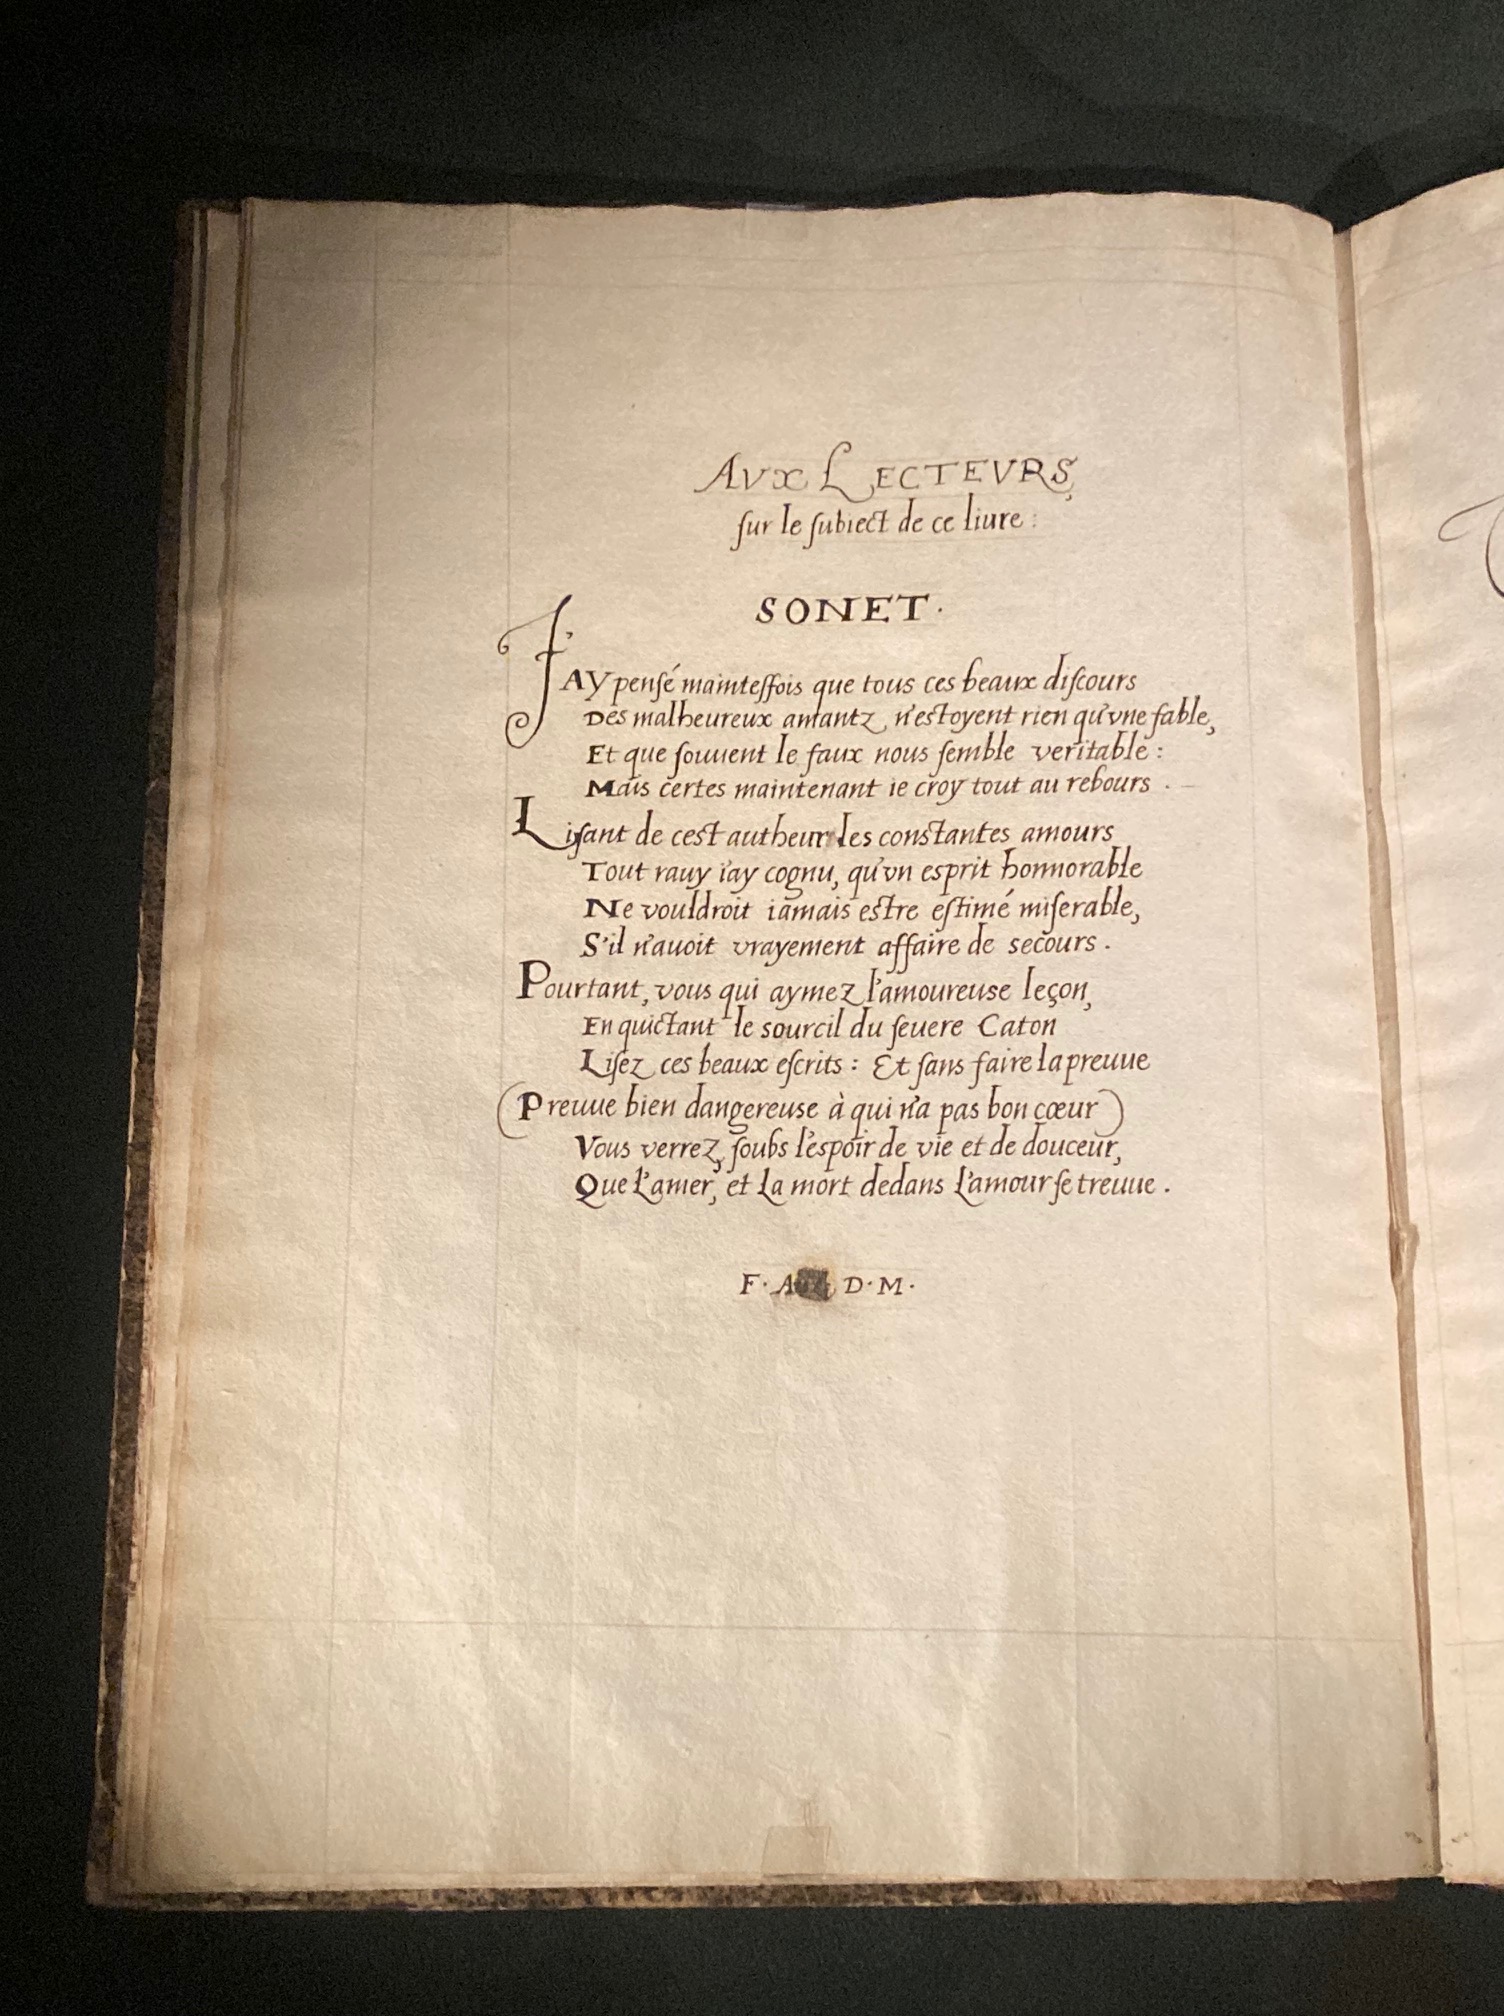 AVX LECTEVRS,
sur le subiect de ce liure :
SONET.
J'AY pensé maintesfois que tous ces beaux discours
Des malheureux amantz, n'estoyent rien qu'vne fable,
Et que souuent le faux nous semble veritable :
Mais certes maintenant ie croy tout au rebours .
Lisant de cest autheur les constantes amours
Tout rauy i'ay cognu, qu'vn esprit honnorable
Ne vouldroit iamais estre estimé miserable,
S'il n'auoit vrayement affaire de secours .
Pourtant, vous qui aymez l'amoureuse leçon,
En quictant le sourcil du seuere Caton
Lisez ces beaux escrits : Et sans faire la preuue
(Preuue bien dangereuse à qui n'a pas bon cœur)
Vous verrez, soubs l'espoir de vie et de douceur,
Que l'amer, et la mort dedans l'amour se treuue .
F. D. M.